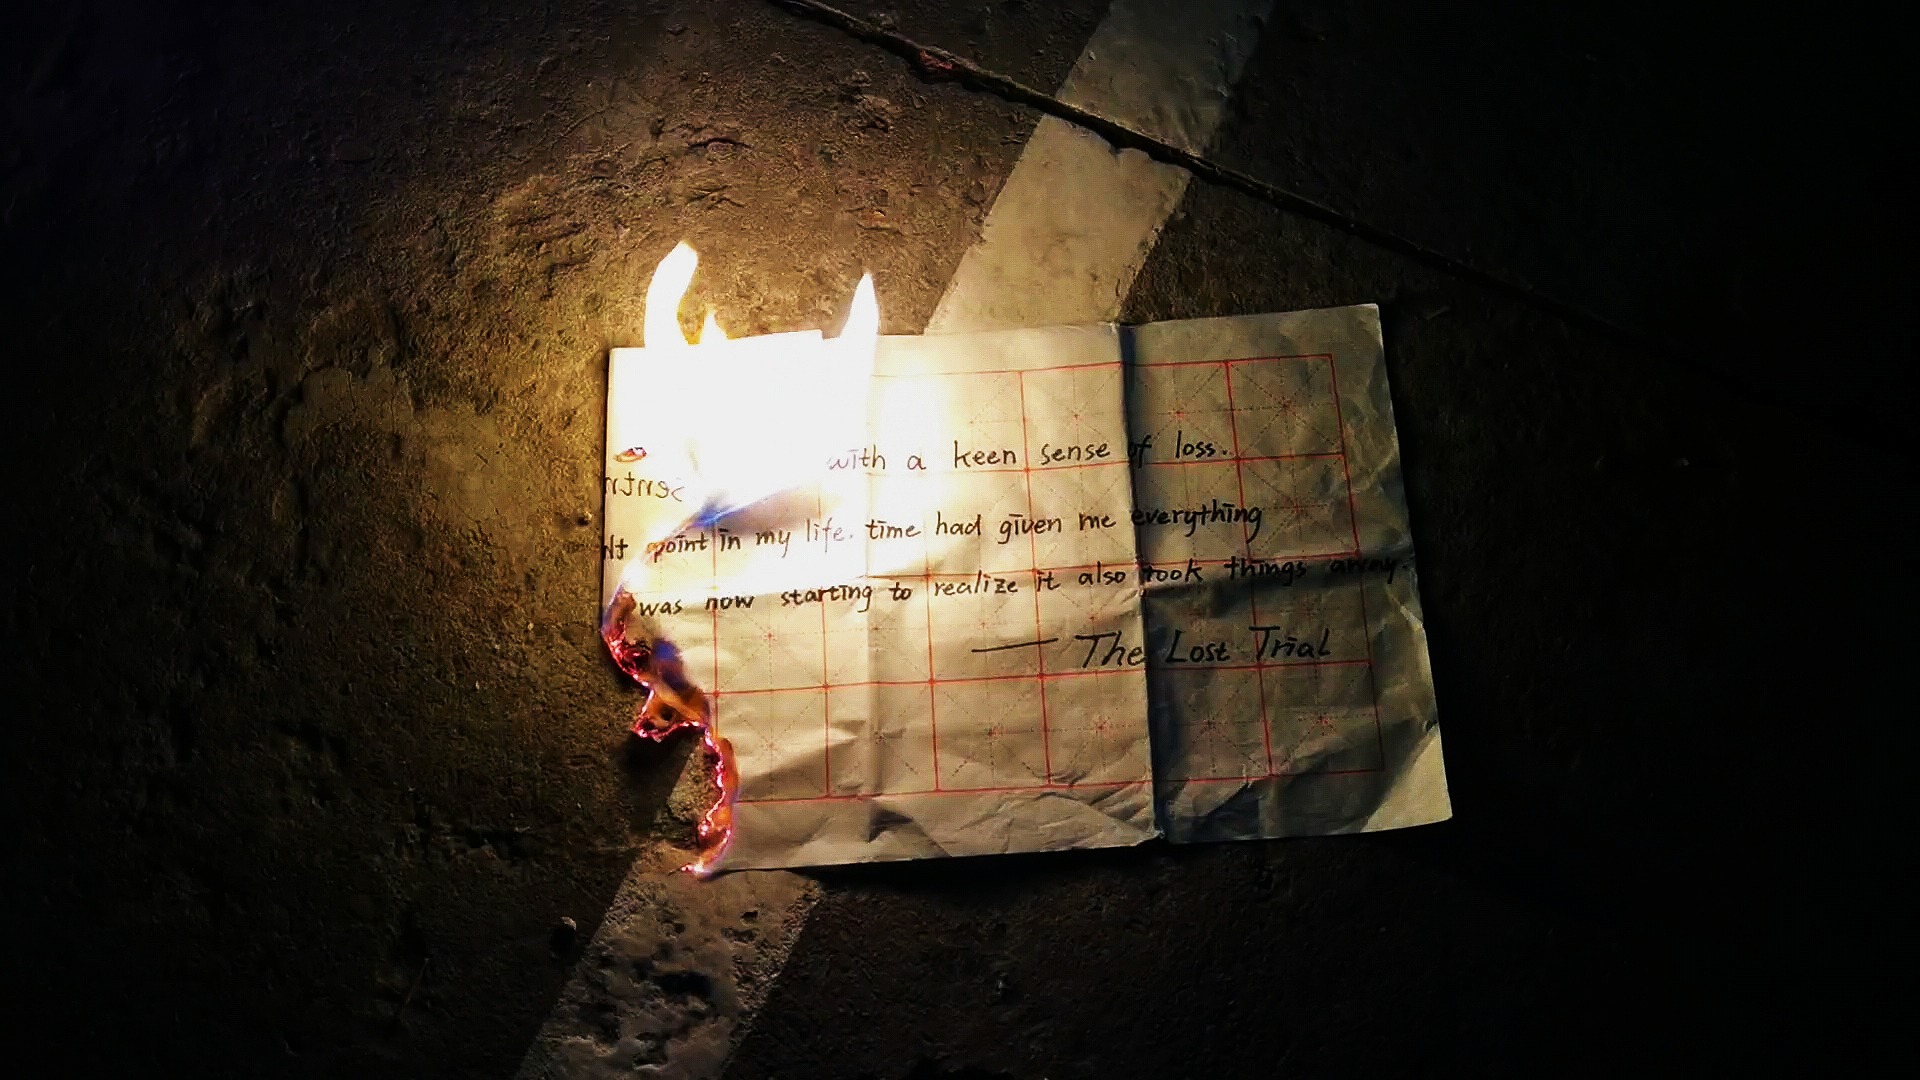 with a keen sense of loss.
point in my life. time had given me everything
was now starting to realize it also took things away.
— The Lost Trial